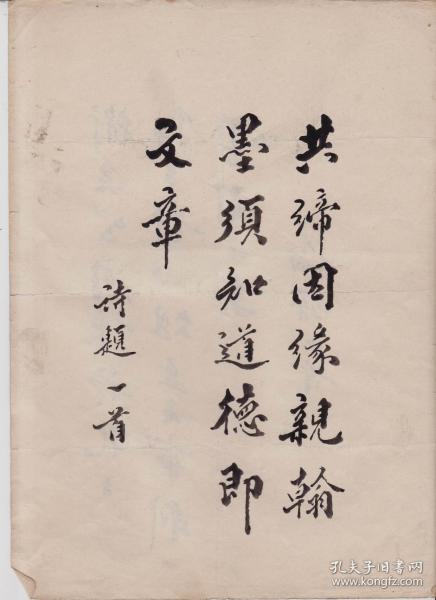 共締因缘親翰
墨須知道德即
文章
诗题一首
孔夫子旧书网
www.kongfz.com